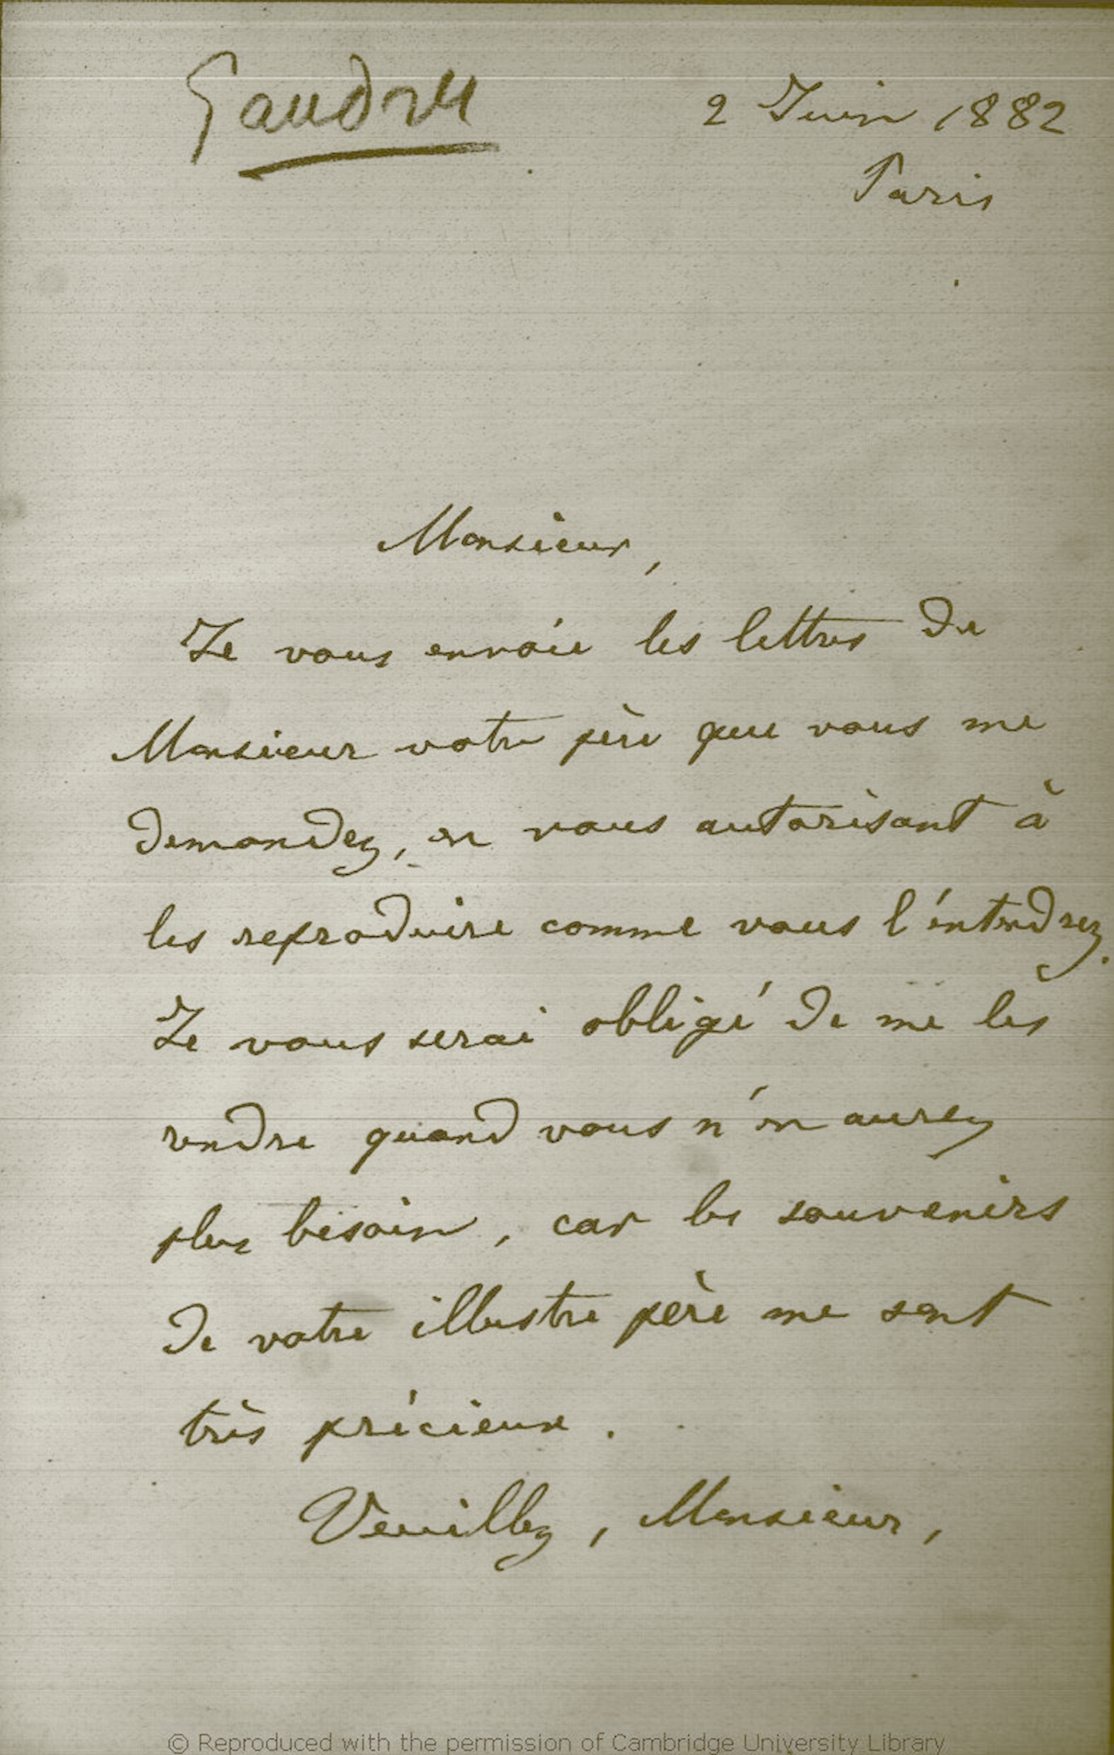 Gaudry
2 Juin 1882
Paris
Monsieur,
Je vous envoie les lettres de
Monsieur votre père que vous me
demandez, en vous autorisant à
les reproduire comme vous l'entendrez.
Je vous serai obligé de me les
rendre quand vous n'en aurez
plus besoin, car les souvenirs
de votre illustre père me sont
très précieux.
Veuillez, Monsieur,
© Reproduced with the permission of Cambridge University Library